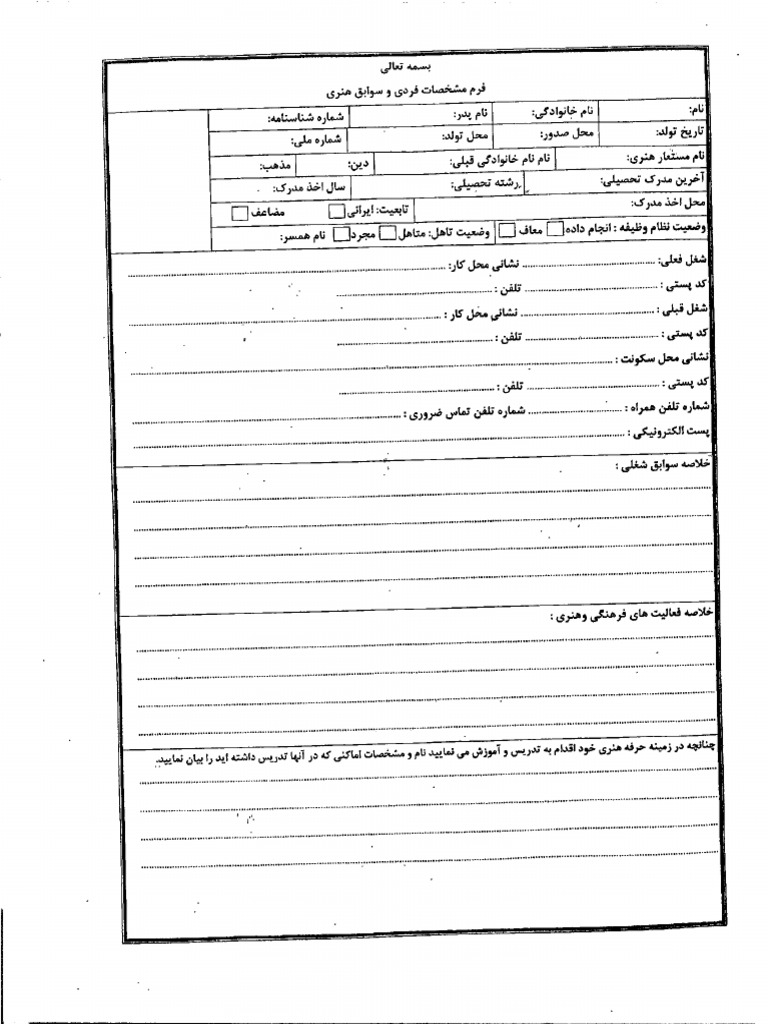 بسمه تعالی
فرم مشخصات فردی و سوابق هنری
نام: نام خانوادگی: نام پدر: شماره شناسنامه:
تاریخ تولد: محل صدور: محل تولد: شماره ملی:
نام مستعار هنری: نام نام خانوادگی قبلی: دین: مذهب:
آخرین مدرک تحصیلی: رشته تحصیلی: سال اخذ مدرک:
محل اخذ مدرک: تابعیت: ایرانی مضاعف
وضعیت نظام وظیفه : انجام داده معاف وضعیت تاهل: متاهل مجرد نام همسر:
شغل فعلی: نشانی محل کار:
کد پستی : تلفن :
شغل قبلی : نشانی محل کار :
کد پستی : تلفن :
نشانی محل سکونت :
کد پستی : تلفن :
شماره تلفن همراه : شماره تلفن تماس ضروری :
پست الکترونیکی :
خلاصه سوابق شغلی :
خلاصه فعالیت های فرهنگی وهنری :
چنانچه در زمینه حرفه هنری خود اقدام به تدریس و آموزش می نمایید نام و مشخصات اماکنی که در آنها تدریس داشته اید را بیان نمایید.